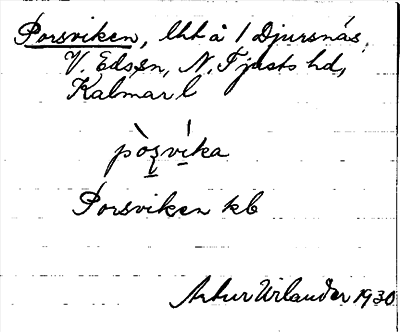 Porsviken, lht å 1 Djursnäs,
V. Eds sn, N. Tjusts hd,
Kalmar l
pòʂvi̱ka
Porsviken kb
Artur Urlander 1930